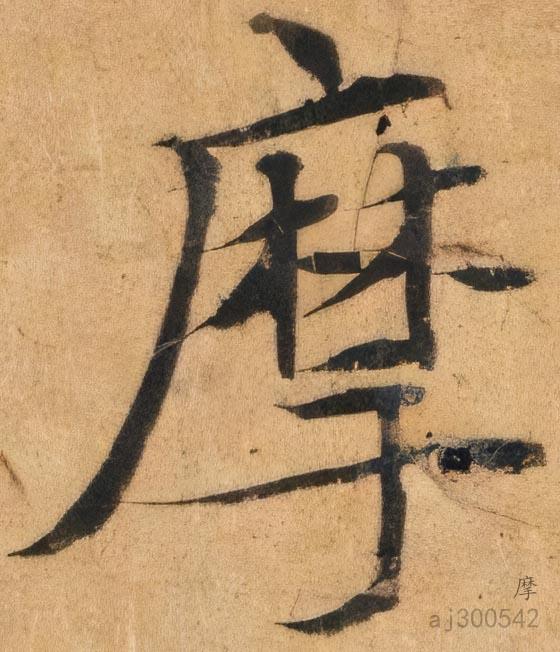 摩
摩
aj300542